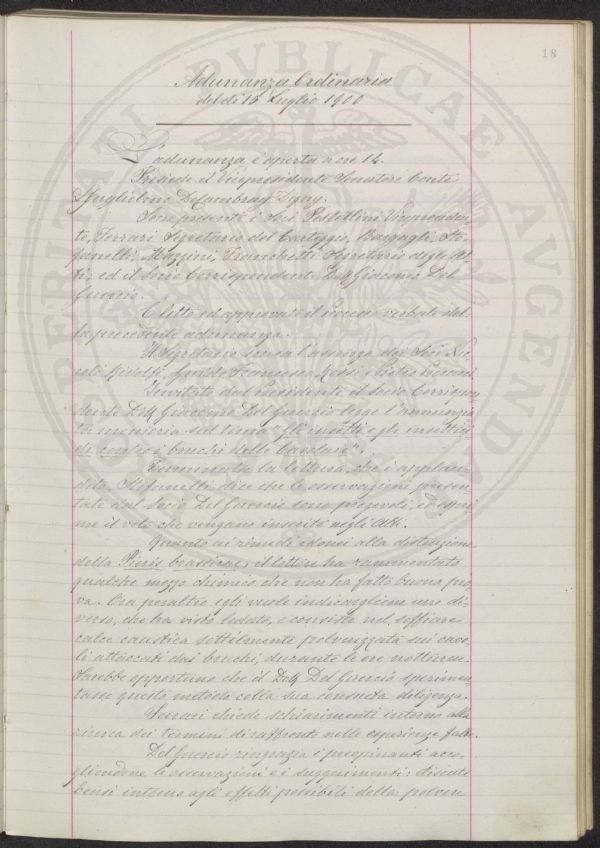 18
Adunanza Ordinaria
del dì 15 Luglio 1900
L'adunanza è aperta a ore 14.
Presiede il Vicepresidente Senatore Conte
Guglielmo De Cambray Digny.
Sono presenti i Soci Passerini Vicepresiden-
te, Ferrari Segretario del Carteggio, Bargagli, Ste-
fanelli, Mazzini, Franchetti Segretario degli At-
ti, ed il Socio Corrispondente Dott. Giacomo Del
Guercio.
È letto ed approvato il processo verbale del-
la precedente adunanza.
Il Segretario scusa l'assenza dei Soci Nic-
colò Ridolfi, Francesco Rossi e Pietro
Invitato dal Presidente il Socio Corrispon-
dente Dott. Giacomo Del Guercio legge l'annunzia-
ta memoria sul tema "Gli insetti e gli insettici-
di contro i bruchi delle Cavolaie".
Terminata la lettura, che è applau-
dita, Stefanelli dice che le osservazioni presen-
tate dal Socio Del Guercio sono pregevoli, ed espri-
me il voto che vengano inserite negli Atti.
Quanto ai rimedi idonei alla distruzione
della Pieris brassicae, il lettore ha rammentato
qualche mezzo chimico che non ha fatto buona pro-
va. Ora peraltro egli vuole indicargliene uno di-
verso, che ha visto lodato, e consiste nel soffiare
calce caustica sottilmente polverizzata sui cavo-
li attaccati dai bruchi, durante le ore notturne.
Sarebbe opportuno che il Dott. Del Guercio sperimen-
tasse questo metodo colla sua consueta diligenza.
Ferrari chiede schiarimenti intorno alla
ricerca dei termini di raffronto nelle esperienze fatte.
Del Guercio ringrazia i preopinanti acco-
gliendone le osservazioni e i suggerimenti; discute
bensì intorno agli effetti possibili della polvere